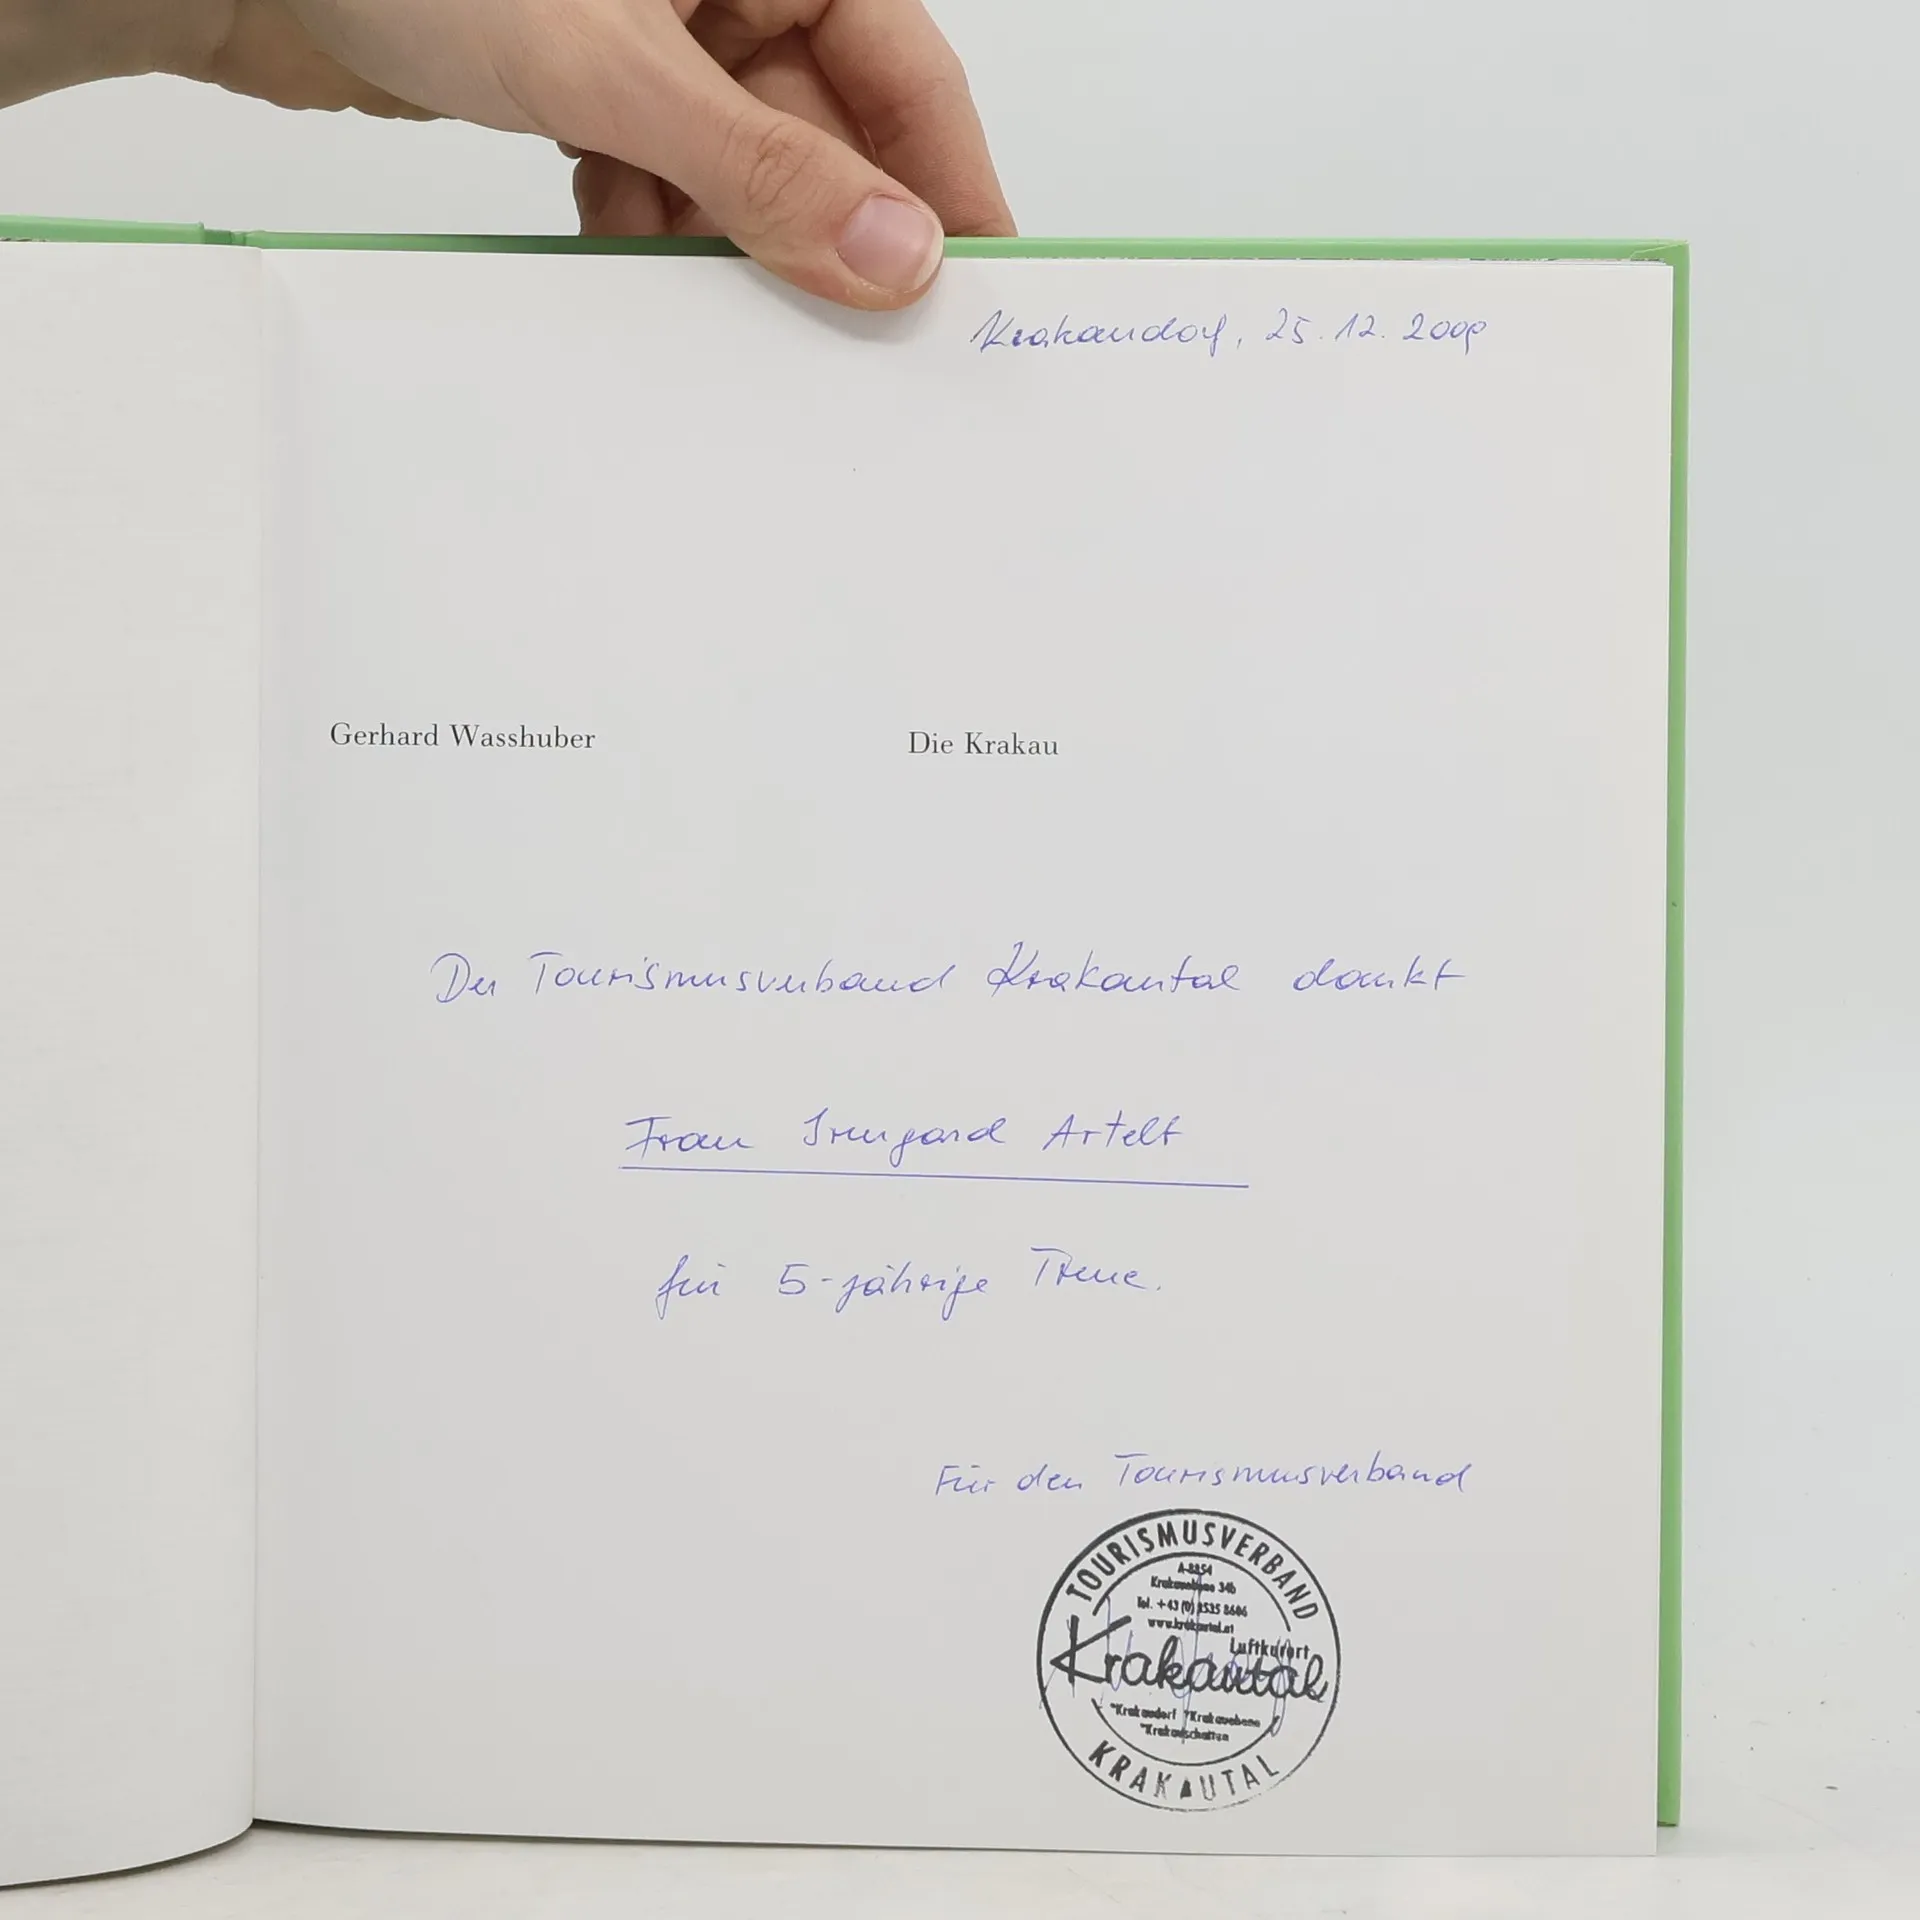 Krakaudorf, 25.12.2009
Gerhard Wasshuber Die Krakau
Der Tourismusverband Krakautal dankt
Frau Irmgard Artelt
für 5-jährige Treue.
Für den Tourismusverband
TOURISMUSVERBAND
A-8854
Krakauebene 34b
Tel. +43 (0) 3535 8606
www.krakautal.at
Luftkurort
Krakautal
*Krakaudorf *Krakauebene
*Krakauschatten
KRAKAUTAL